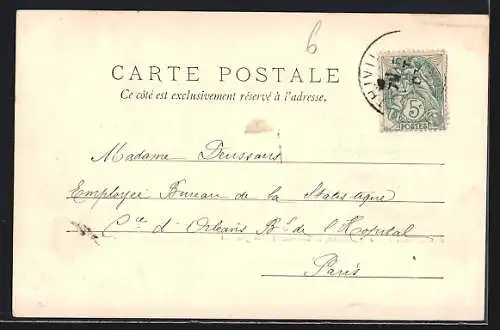 6
CARTE POSTALE
Ce côté est exclusivement réservé à l'adresse.
5
POSTES
Madame
Employée Bureau de la Statistique
Cie d'Orléans Bd de l'Hôpital
Paris